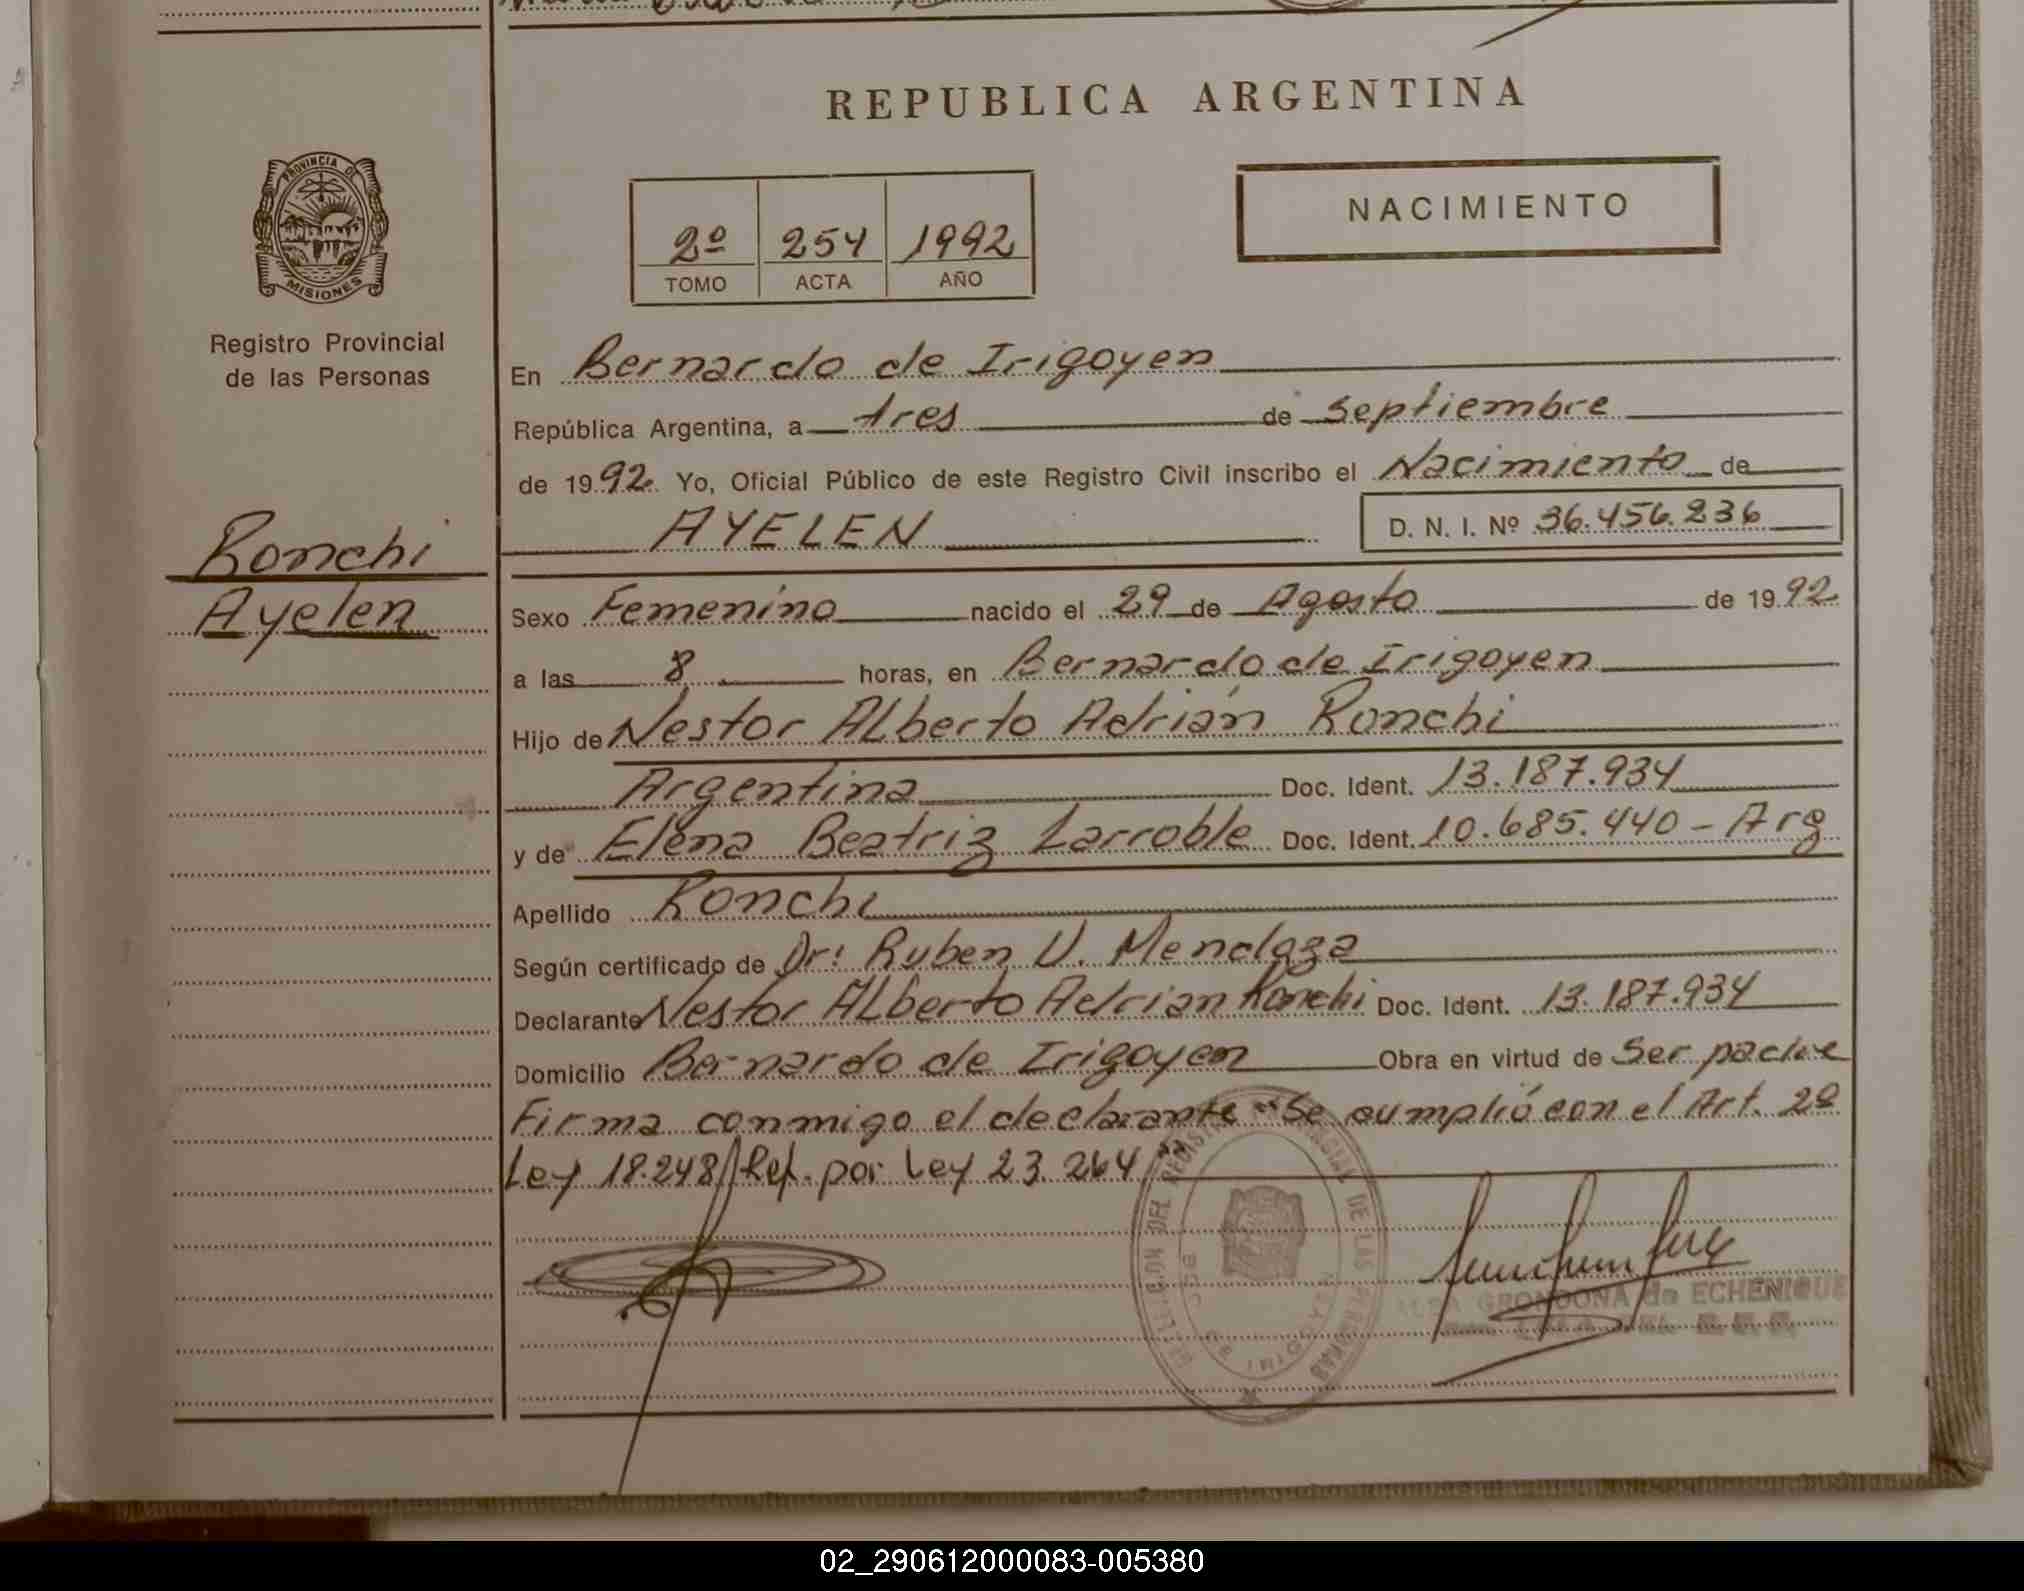 REPUBLICA ARGENTINA
PROVINCIA DE
MISIONES
Registro Provincial
de las Personas
2º 254 1992
TOMO ACTA AÑO
NACIMIENTO
En Bernardo de Irigoyen
República Argentina, a tres de septiembre
de 1992. Yo, Oficial Público de este Registro Civil inscribo el Nacimiento de
AYELEN D. N. I. Nº 36.456.236
Ronchi
Ayelen
Sexo Femenino nacido el 29 de Agosto de 1992
a las 8 horas, en Bernardo de Irigoyen
Hijo de Nestor ALberto Adrián Ronchi
Argentina Doc. Ident. 13.187.934
y de Elena Beatriz Larroble Doc. Ident. 10.685.440 - Arg
Apellido Ronchi
Según certificado de Dr: Ruben U. Mendoza
Declarante Nestor ALberto Adrian Ronchi Doc. Ident. 13.187.934
Domicilio Bernardo de Irigoyen Obra en virtud de Ser padre
Firma conmigo el declarante "Se cumplió con el Art. 2º
Ley 18.248/Ref. por Ley 23.264"
DEL REGISTRO PROVINCIAL DE LAS PERSONAS
GRONDONA de ECHENIQUE
02_290612000083-005380